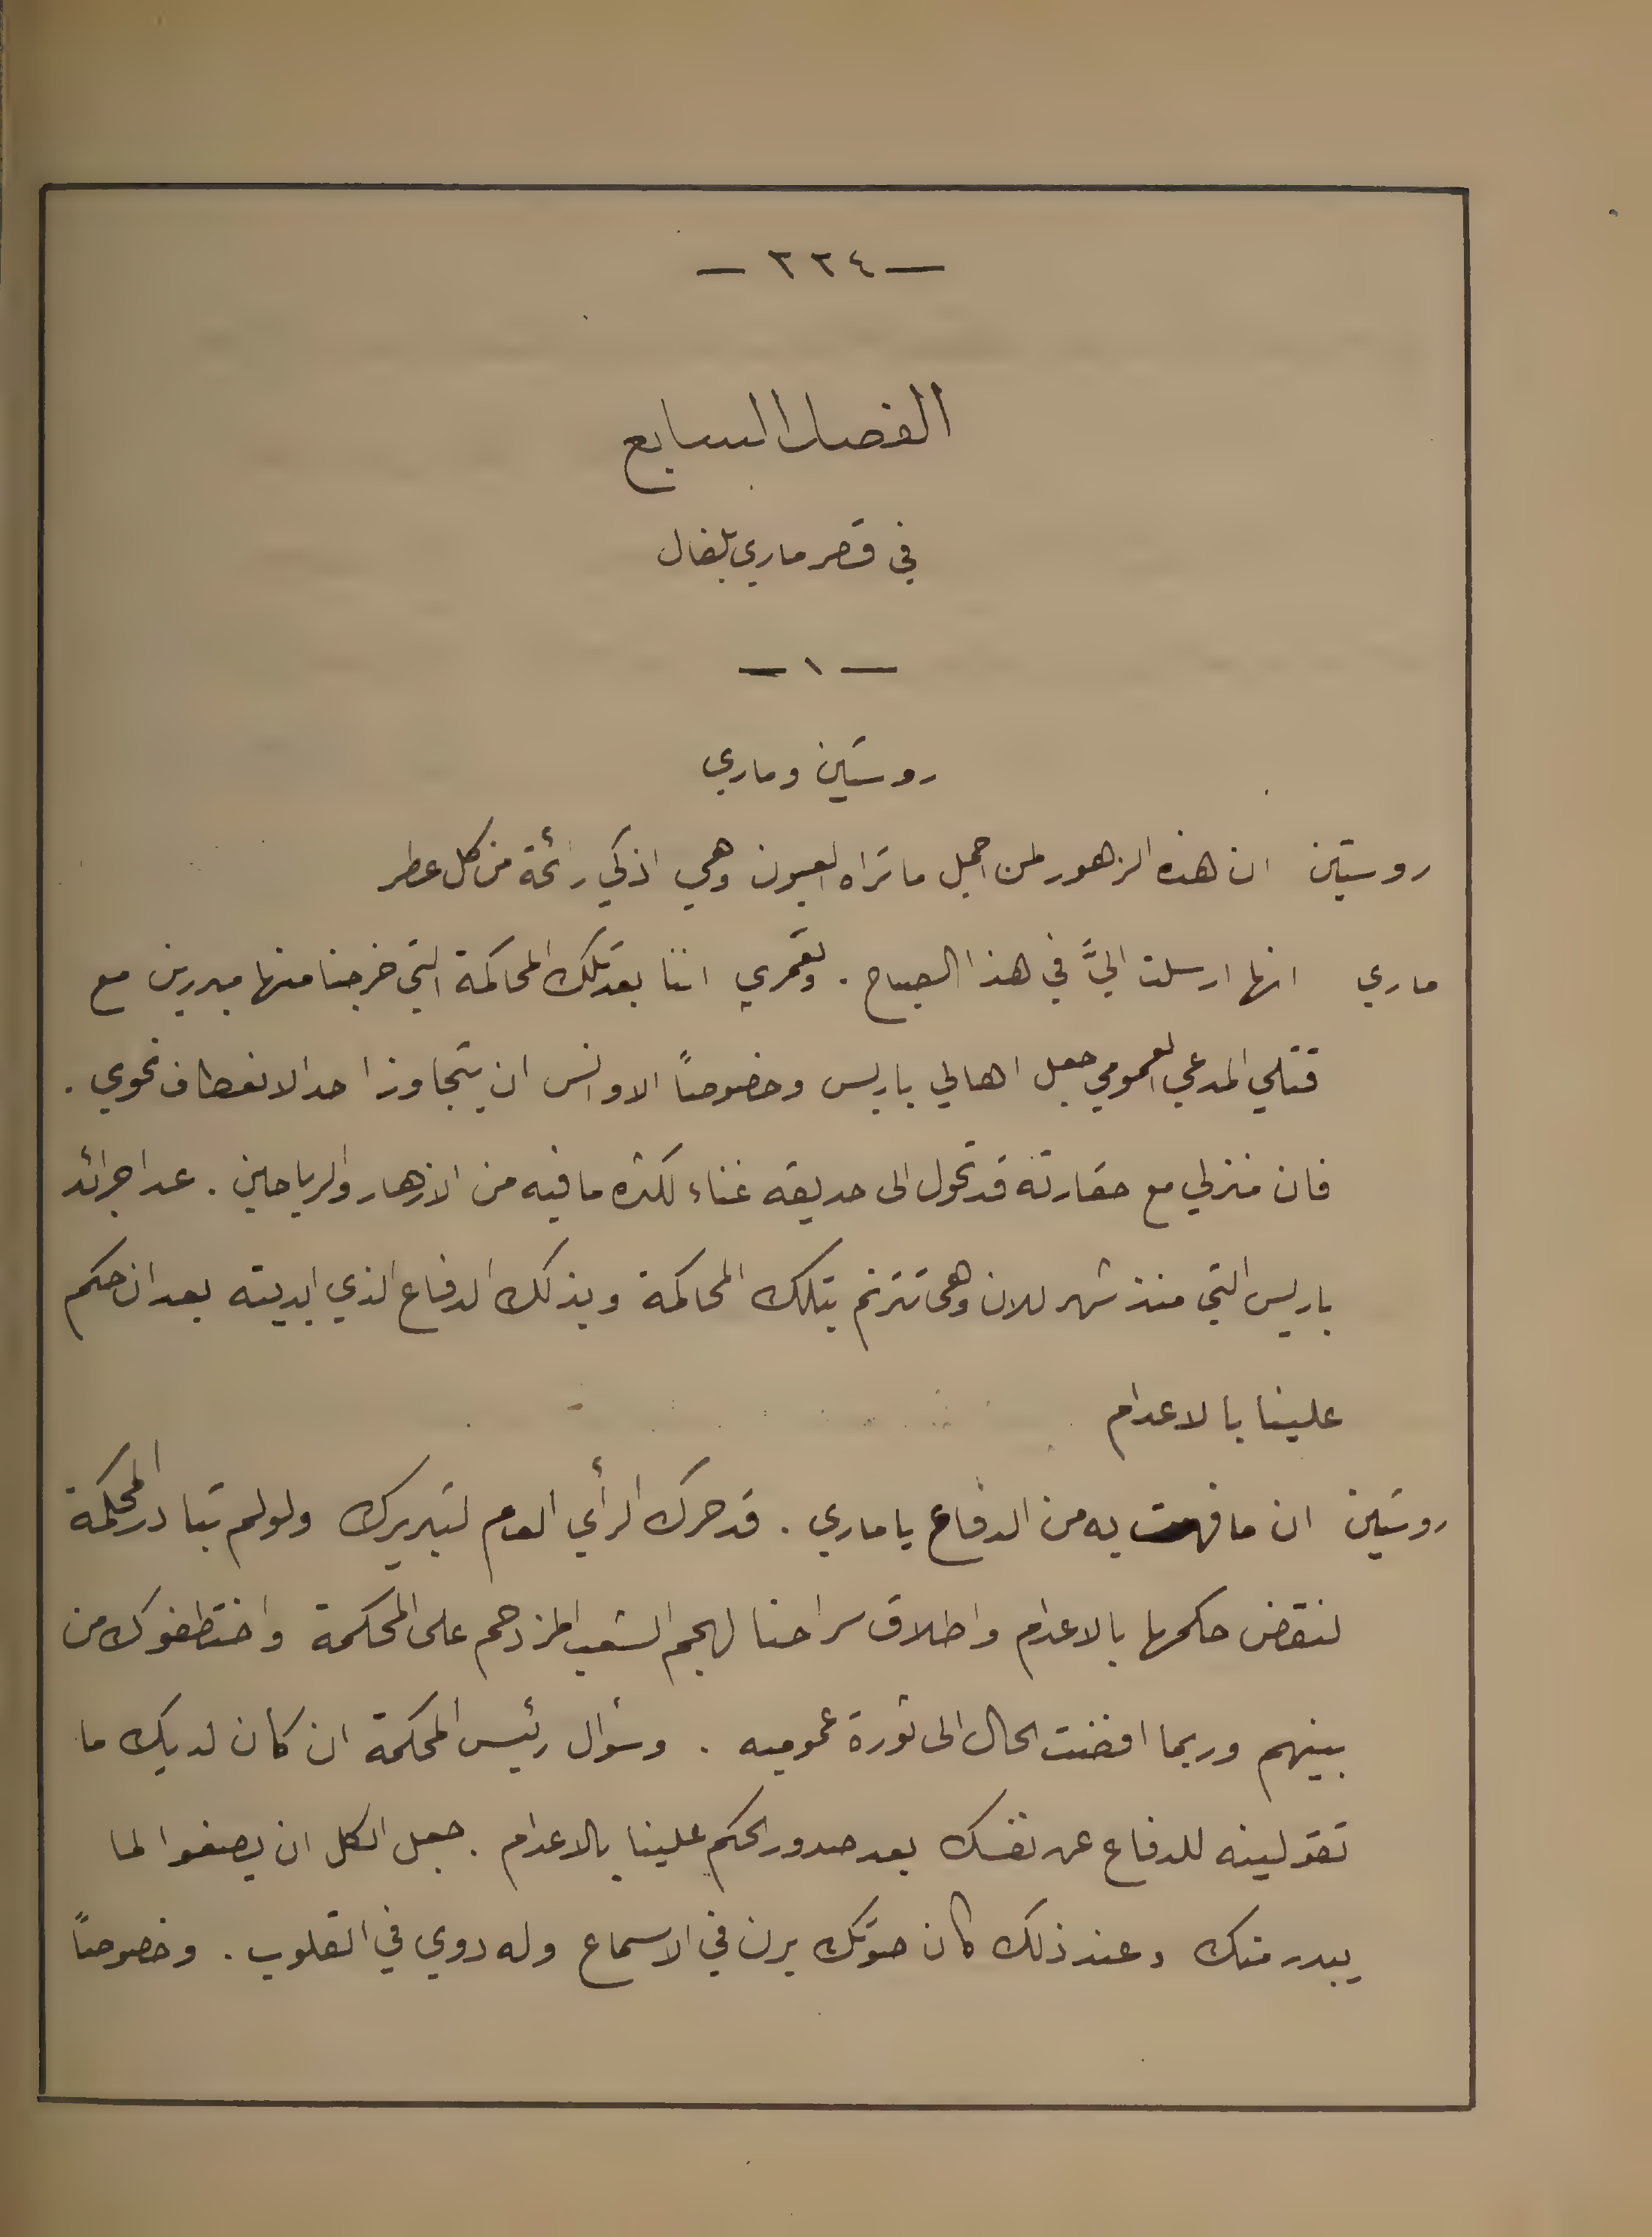 — ٢٢٤ —
الفصل السابع
في قصر ماري بلفال
— ١ —
روستين وماري
روستين ان هذه الزهور لمن اجمل ما تراه العيون وهي اذكي رائحة من كل عطر
ماري انها ارسلت اليَّ في هذا الصباح . ولعمري اننا بعد تلك المحاكمة التي خرجنا منها مبررين مع
قتلي المدعي العمومي جعل اهالي باريس وخصوصاً الاوانس ان يتجاوزا حد الانعطاف نحوي .
فان منزلي مع حقارته قد تحول الى حديقه غناء لكثره ما فيه من الازهار والرياحين . عدا جرائد
باريس التي منذ شهر للان وهى تترنم بتلك المحاكمة وبذلك الدفاع الذي ابديته بعد ان حكم
علينا بالاعدام
روستين ان ما فهمت به من الدفاع يا ماري . قد حرك الرأي العام لتبريرك ولو لم تبادر المحكمة
لنقض حكمها بالاعدام واطلاق سراحنا لهجم الشعب المزدحم على المحكمة واختطفوك من
بينهم وربما افضت الحال الى ثورة عموميه . وسؤال رئيس المحكمة ان كان لديك ما
تقولينه للدفاع عن نفسك بعد صدور الحكم علينا بالاعدام . جعل الكل ان يصغوا لما
يبدر منك وعند ذلك كان صوتك يرن في الاسماع وله دوي في القلوب . وخصوصاً